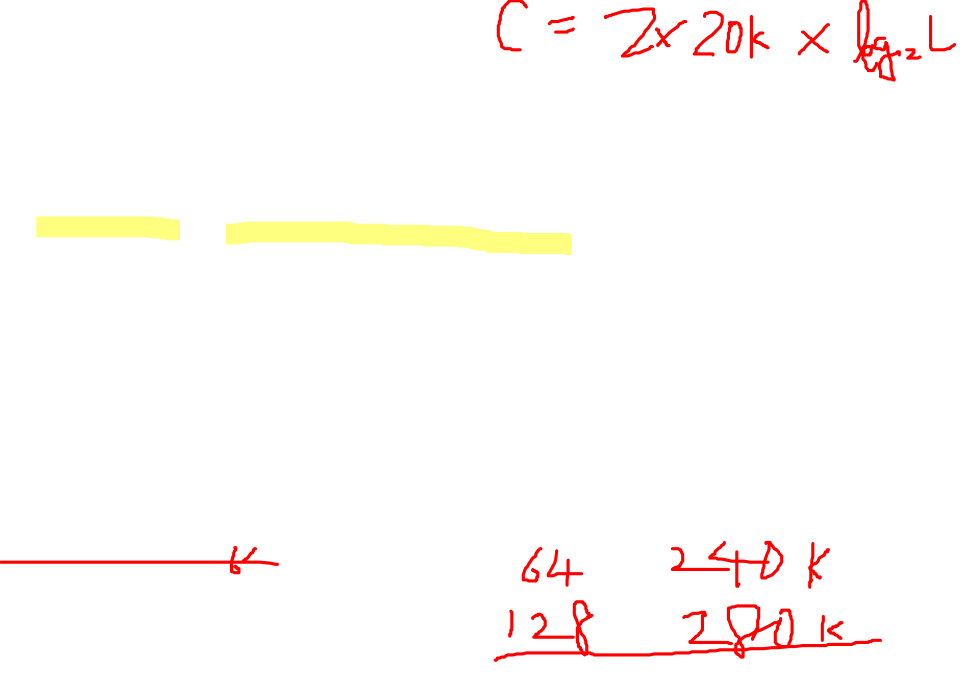 C = 2 x 20k x log₂ L
64 240 k
128 280 k